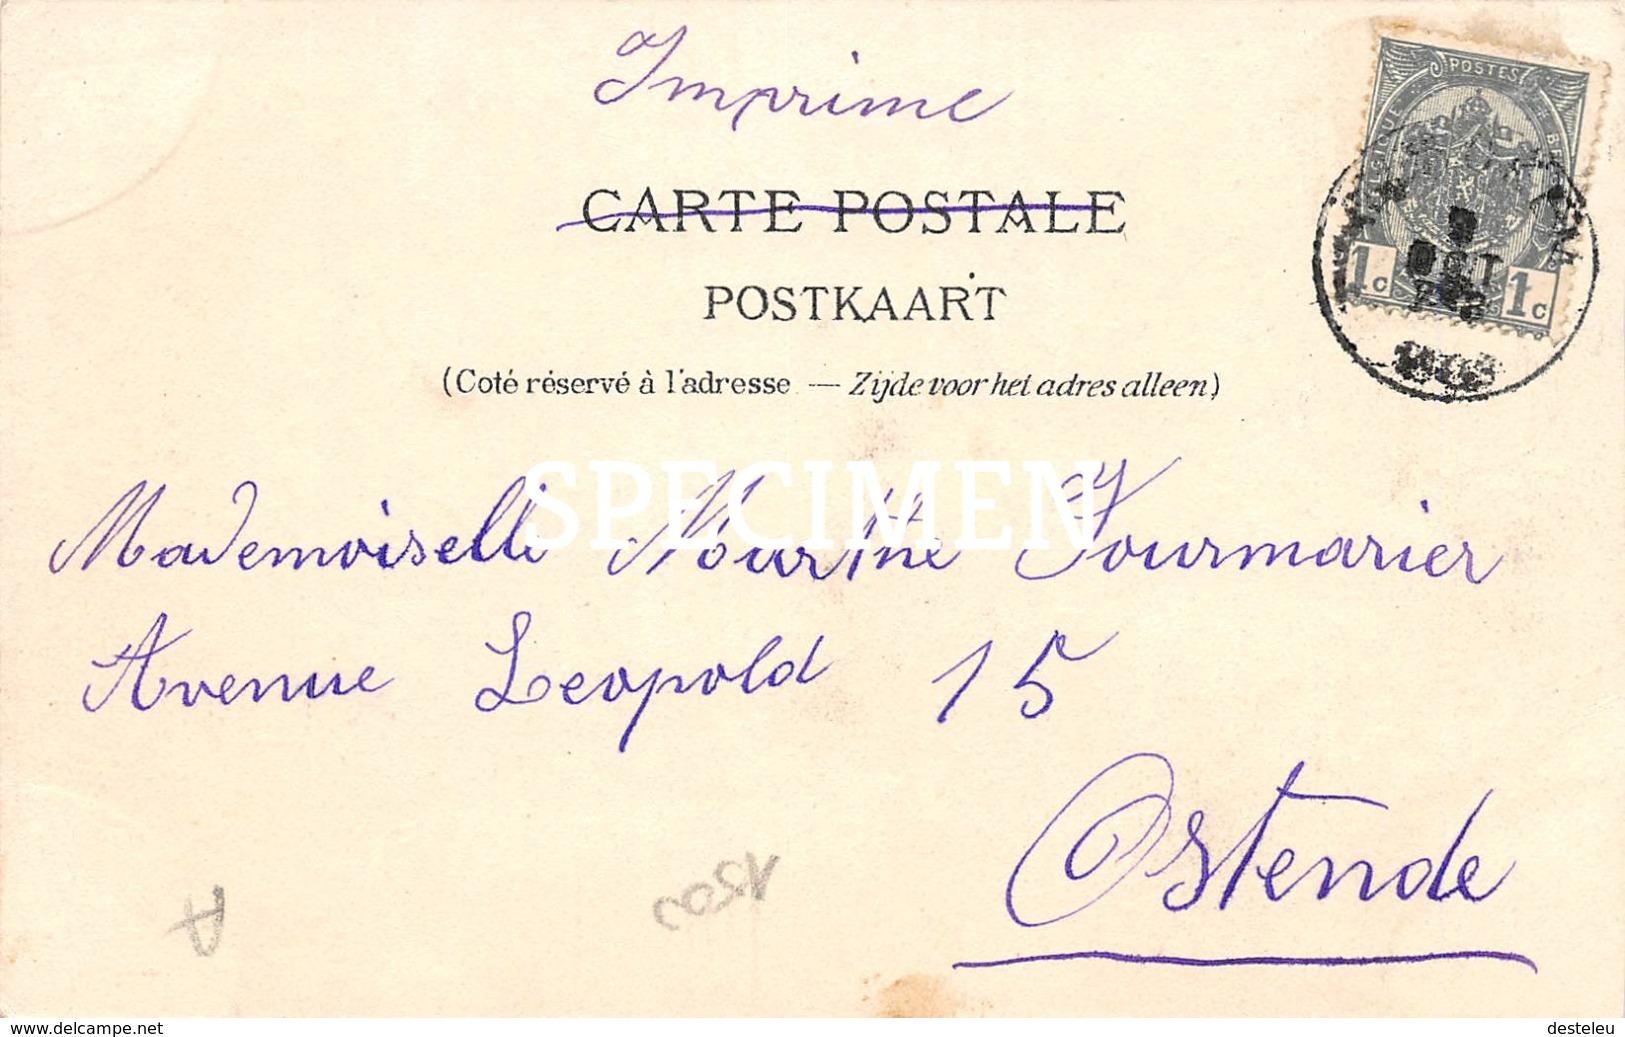 Imprime
POSTES
1c 1c
OCT
CARTE POSTALE
POSTKAART
(Coté réservé à l'adresse — Zijde voor het adres alleen)
SPECIMEN
Mademoiselle Fourmarier
Avenue Leopold 15
Ostende
A
www.delcampe.net desteleu